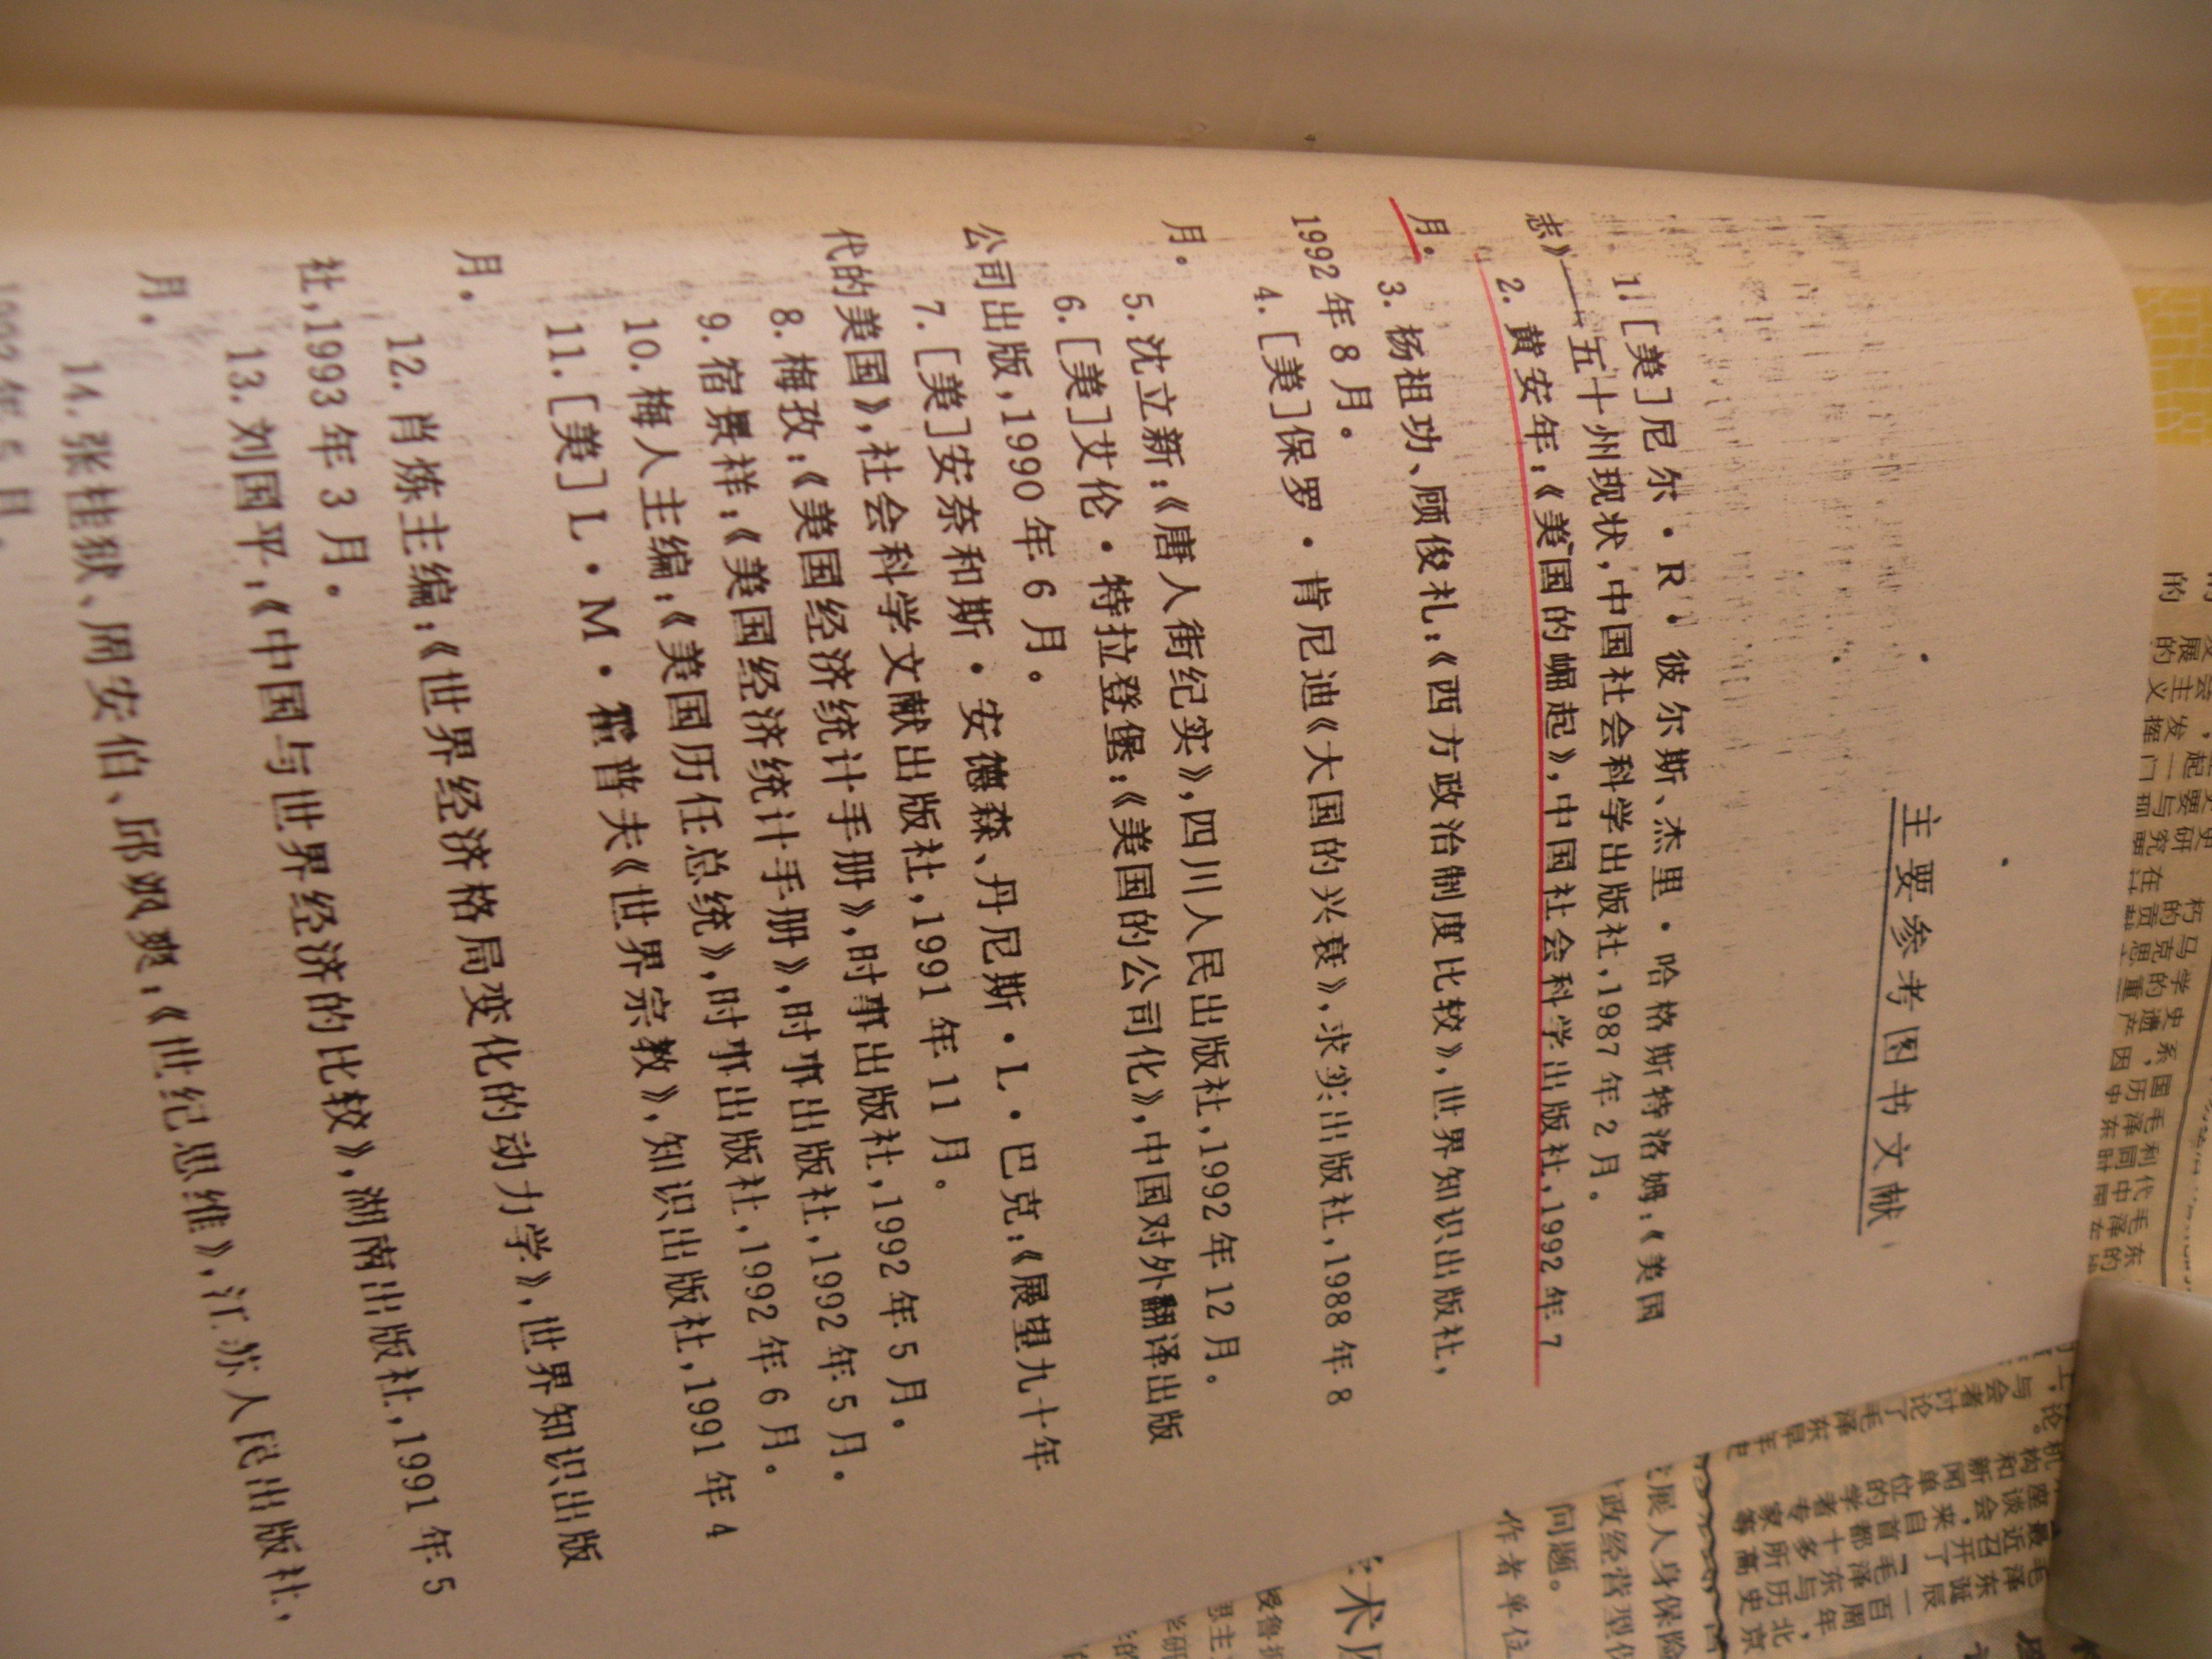 主要参考图书文献
1. [美]尼尔·R·彼尔斯、杰里·哈格斯特洛姆:《美国
志》——五十州现状,中国社会科学出版社,1987年2月。
2. 黄安年:《美国的崛起》,中国社会科学出版社,1992年7
月。
3. 杨祖功、顾俊礼:《西方政治制度比较》,世界知识出版社,
1992年8月。
4. [美]保罗·肯尼迪《大国的兴衰》,求实出版社,1988年8
月。
5. 沈立新:《唐人街纪实》,四川人民出版社,1992年12月。
6. [美]艾伦·特拉登堡:《美国的公司化》,中国对外翻译出版
公司出版,1990年6月。
7. [美]安奈和斯·安德森、丹尼斯·L·巴克:《展望九十年
代的美国》,社会科学文献出版社,1991年11月。
8. 梅孜:《美国经济统计手册》,时事出版社,1992年5月。
9. 宿景祥:《美国经济统计手册》,时事出版社,1992年5月。
10. 梅人主编:《美国历任总统》,时事出版社,1992年6月。
11. [美]L·M·霍普夫《世界宗教》,知识出版社,1991年4
月。
12. 肖炼主编:《世界经济格局变化的动力学》,世界知识出版
社,1993年3月。
13. 刘国平:《中国与世界经济的比较》,湖南出版社,1991年5
月。
14. 张桂狱、周安伯、邱飒爽:《世纪思维》,江苏人民出版社,
年5月.
毛泽东诞辰一百周年,北京
最近召开了“毛泽东与历史
座谈会,来自首都十多所高
机构和新闻单位的学者专家等
上,与会者讨论了毛泽东早年史
展人身保险
政经营型
问题。
作者单位